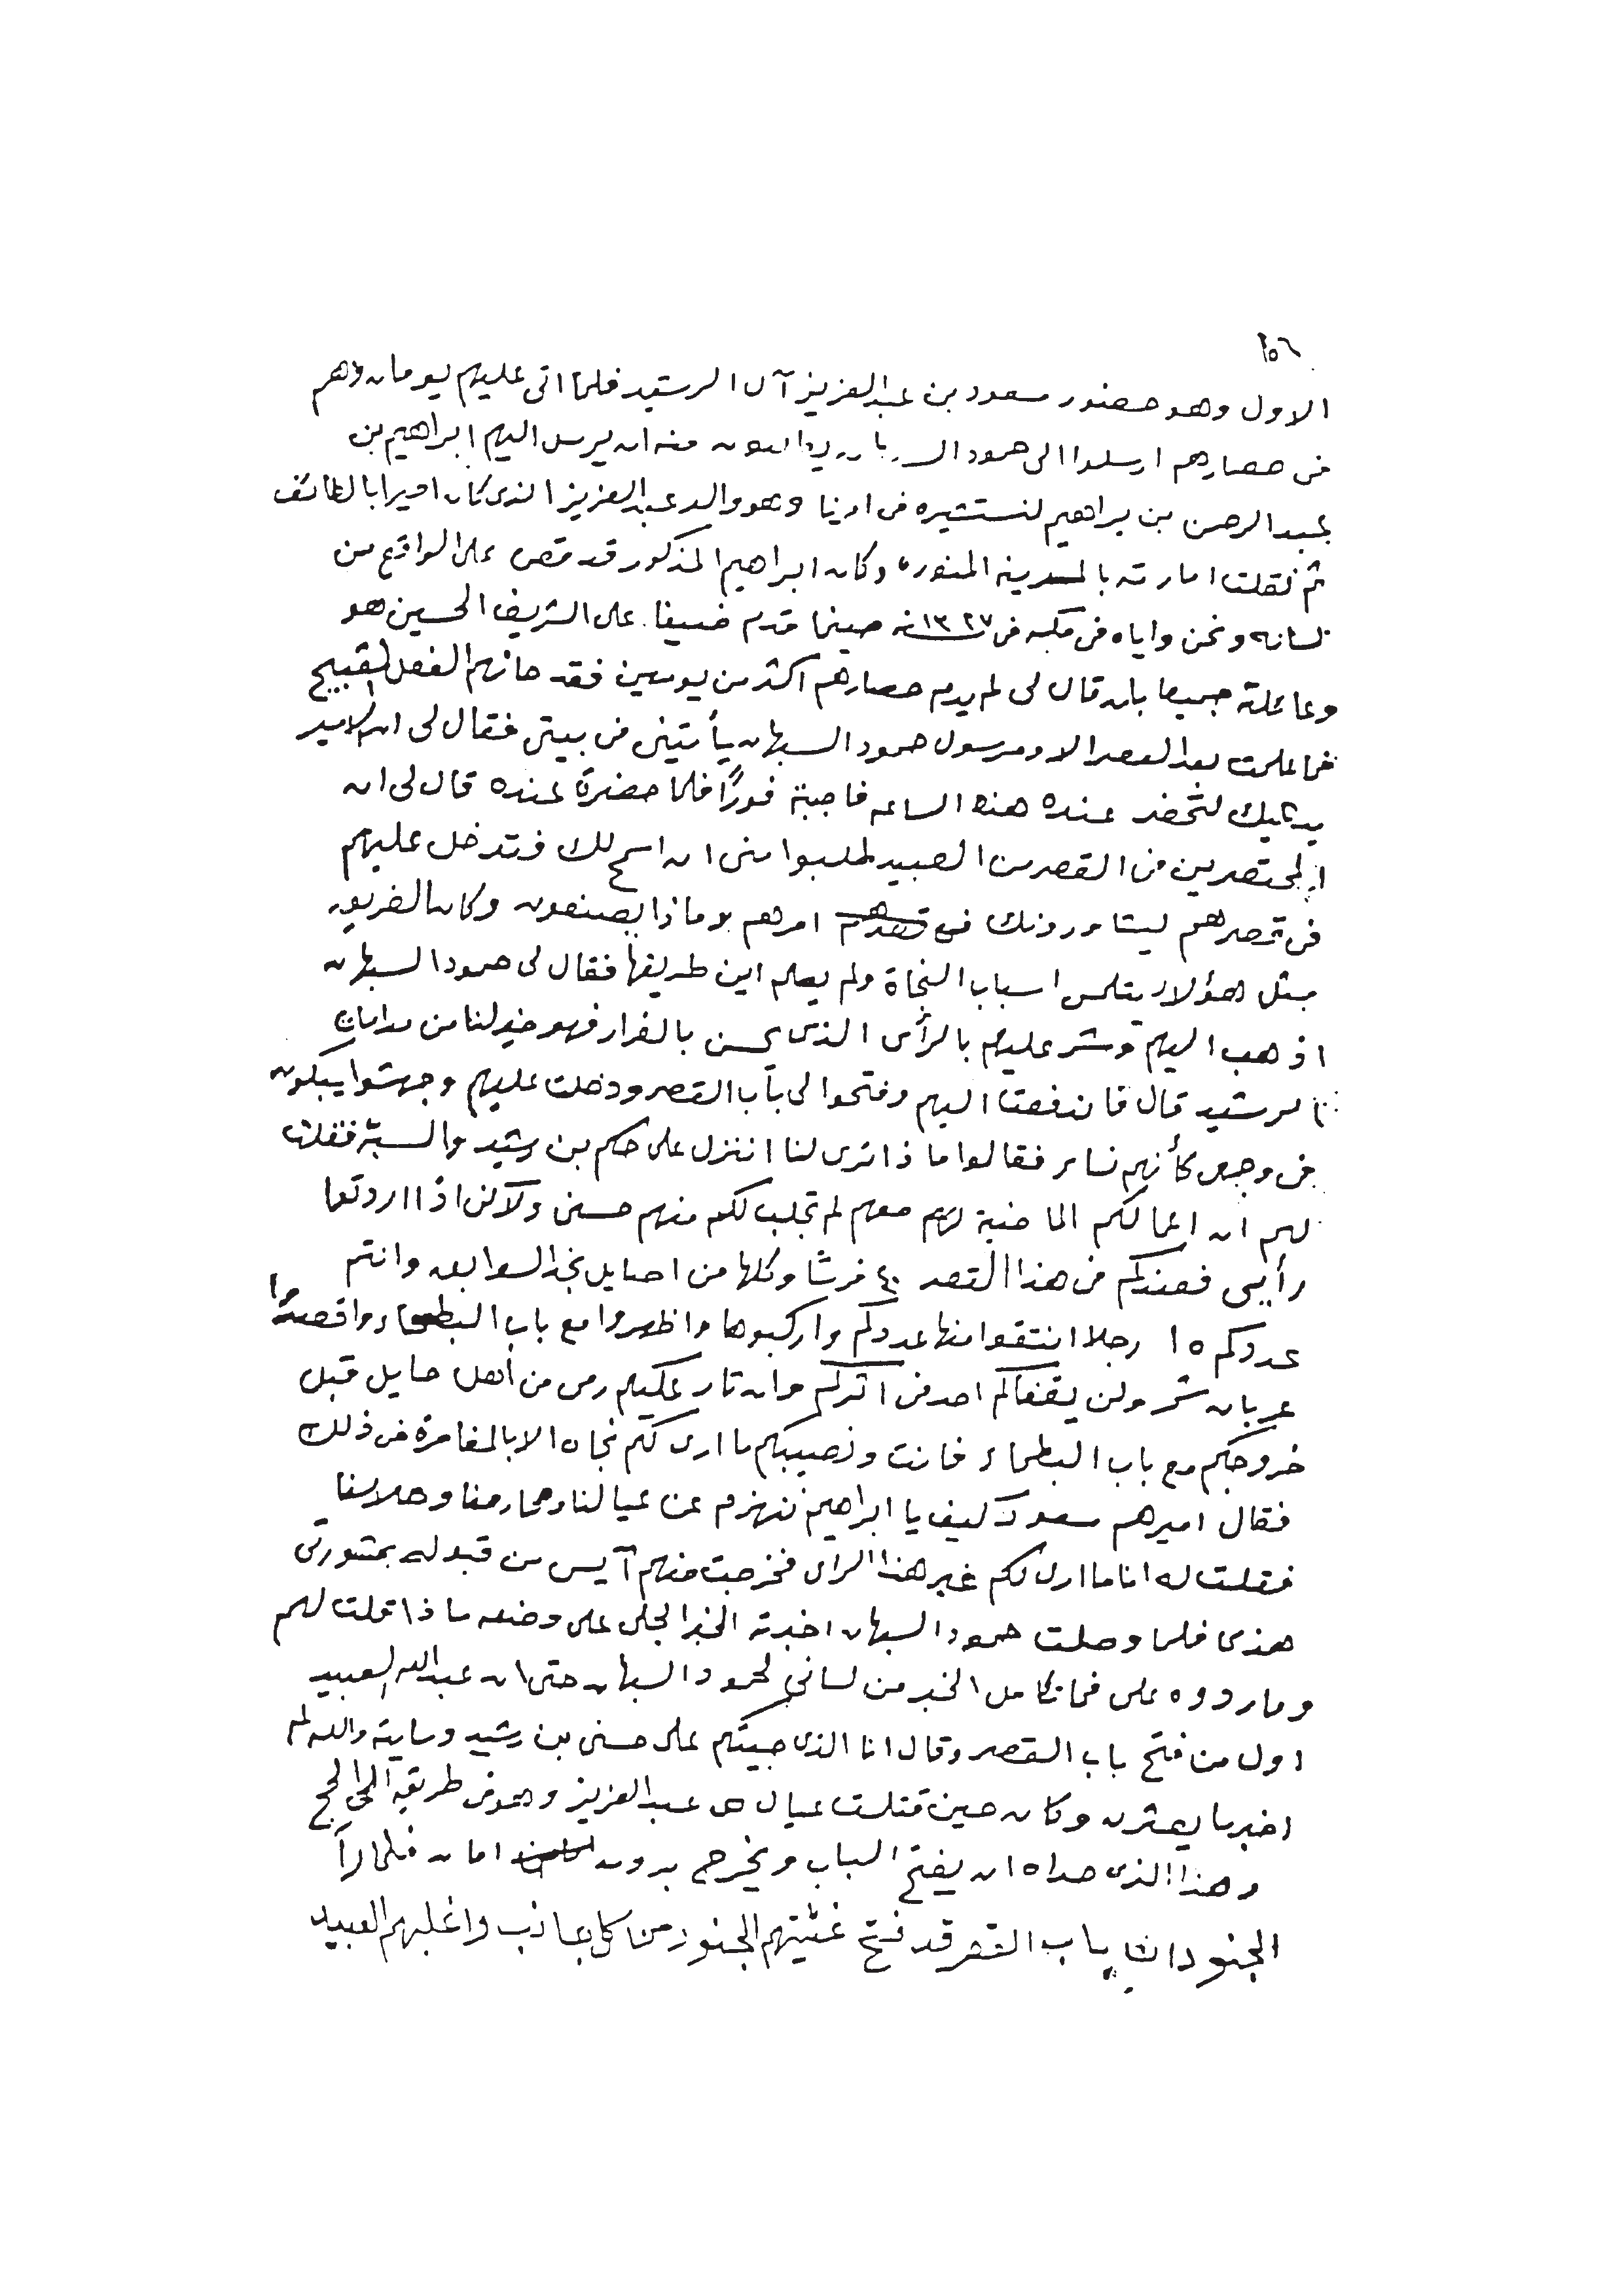 ١٥٦
الاول وهو حضور سعود بن عبدالعزيز آل الرشيد فلما اتى عليهم يومان وهم
فى حصارهم ارسلوا الى حمود السبهان منه ان يرسل اليهم ابراهيم بن
عبدالرحمن بن براهيم لنستشيره فى امرنا وهو والد عبدالعزيز الذى كان اميرا بالطائف
ثم نقلت امارته بالمدينه المنوره وكان ابراهيم المذكور قد قص على الواقع من
لسانه ونحن واياه فى مكه فى ١٣٢٧نه حينما قدم ضيفا على الشريف الحسين هو
وعائلة جميعا بان قال لى لم يدم حصارهم اكثر من يومين فقد حانهم الفعل القبيح
فما علمت بعد العصر الا ومرسول حمود السبهان يأتينى فى بيتى فقال لى ان الامير
يدعيك لتحضر عنده هذه الساعه فاجبة فوراً فلما حضرة عنده قال لى ان
المحتصرين فى القصر من العبيد طلبوا منى ان اسمح لك فتدخل عليهم
فى قصرهم ليشاورونك فى امرهم وماذا يصنعون وكان الغريق
مثل هؤلاء يتلمس اسباب النجاة ولم يعلم اين طريقها فقال لى حمود السبهان
اذهب اليهم وشر عليهم بالرأى الذى يحسن بالفرار فهو خير لنا من
الرشيد قال فاندفعت اليهم وفتحوا لى باب القصر ودخلت عليهم وجهشوا يبكون
فى وجهى كأنهم نساء فقالوا ماذا ترى لنا اننزل على حكم بن رشيد والسبهان فقلت
لهم ان اعمالكم الماضية لهم معهم لم تجلب لكم منهم حسنى ولاكن اذا اردتوا
رأيى فعندكم فى هذا القصر ٤٠ فرسًا وكلها من اصايل نجد السوابق وانتم
عددكم ١٥ رجلا انتقوا منها عددكم واركبوها واظهروا مع باب البطحاء واقصدوا
عربان شمر ولن يقفاكم احد فى اثركم وان ثار عليكم رمى من أهل حايل قبل
خروجكم مع باب البطحاء فانت ونصيبكم ما ارى لكم نجاه الا بالمغامرة فى ذلك
فقال اميرهم سعود كيف يا ابراهيم ننهزم عن عيالنا ومحارمنا وحلايلنا
فقلت له انا ما ارى لكم غير هذا الراى فخرجت منهم آيس من قبوله بمشورتى
هذى فلما وصلت حمود السبهان اخبرته الخبر الجلى على وضعه ماذا قلت لهم
وما ردوه على فما تكامل الخبر من لسانى لحمود السبهان حتى ان عبدالله العبيد
اول من فتح باب القصر وقال انا الذى جيتكم على حسنى بن رشيد وسايته والله لم
اخبر ما يعثرن وكان حين قتلت عيال عبدالعزيز وهو فى طريقه الى الحج
وهذا الذى حداه ان يفتح الباب ويخرج بدون امان فلما رأ
الجنود ان باب القصر قد فتح غشيتهم الجنود من كل جانب واغلبهم العبيد